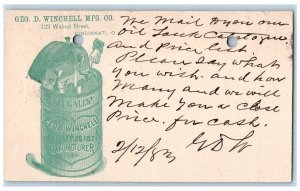 GEO. D. WINCHELL MFG. CO.
123 Walnut Street,
CINCINNATI, O.
5 GALLS!
GEO. D. WINCHELL
SEP. 26 1871
MANUFACTURER
We Mail to you our
Oil Tank Catalogue
and Price list.
Please Say what
you wish. and how
Many and we will
Make you a close
Price. for cash.
2/12/83 GDW